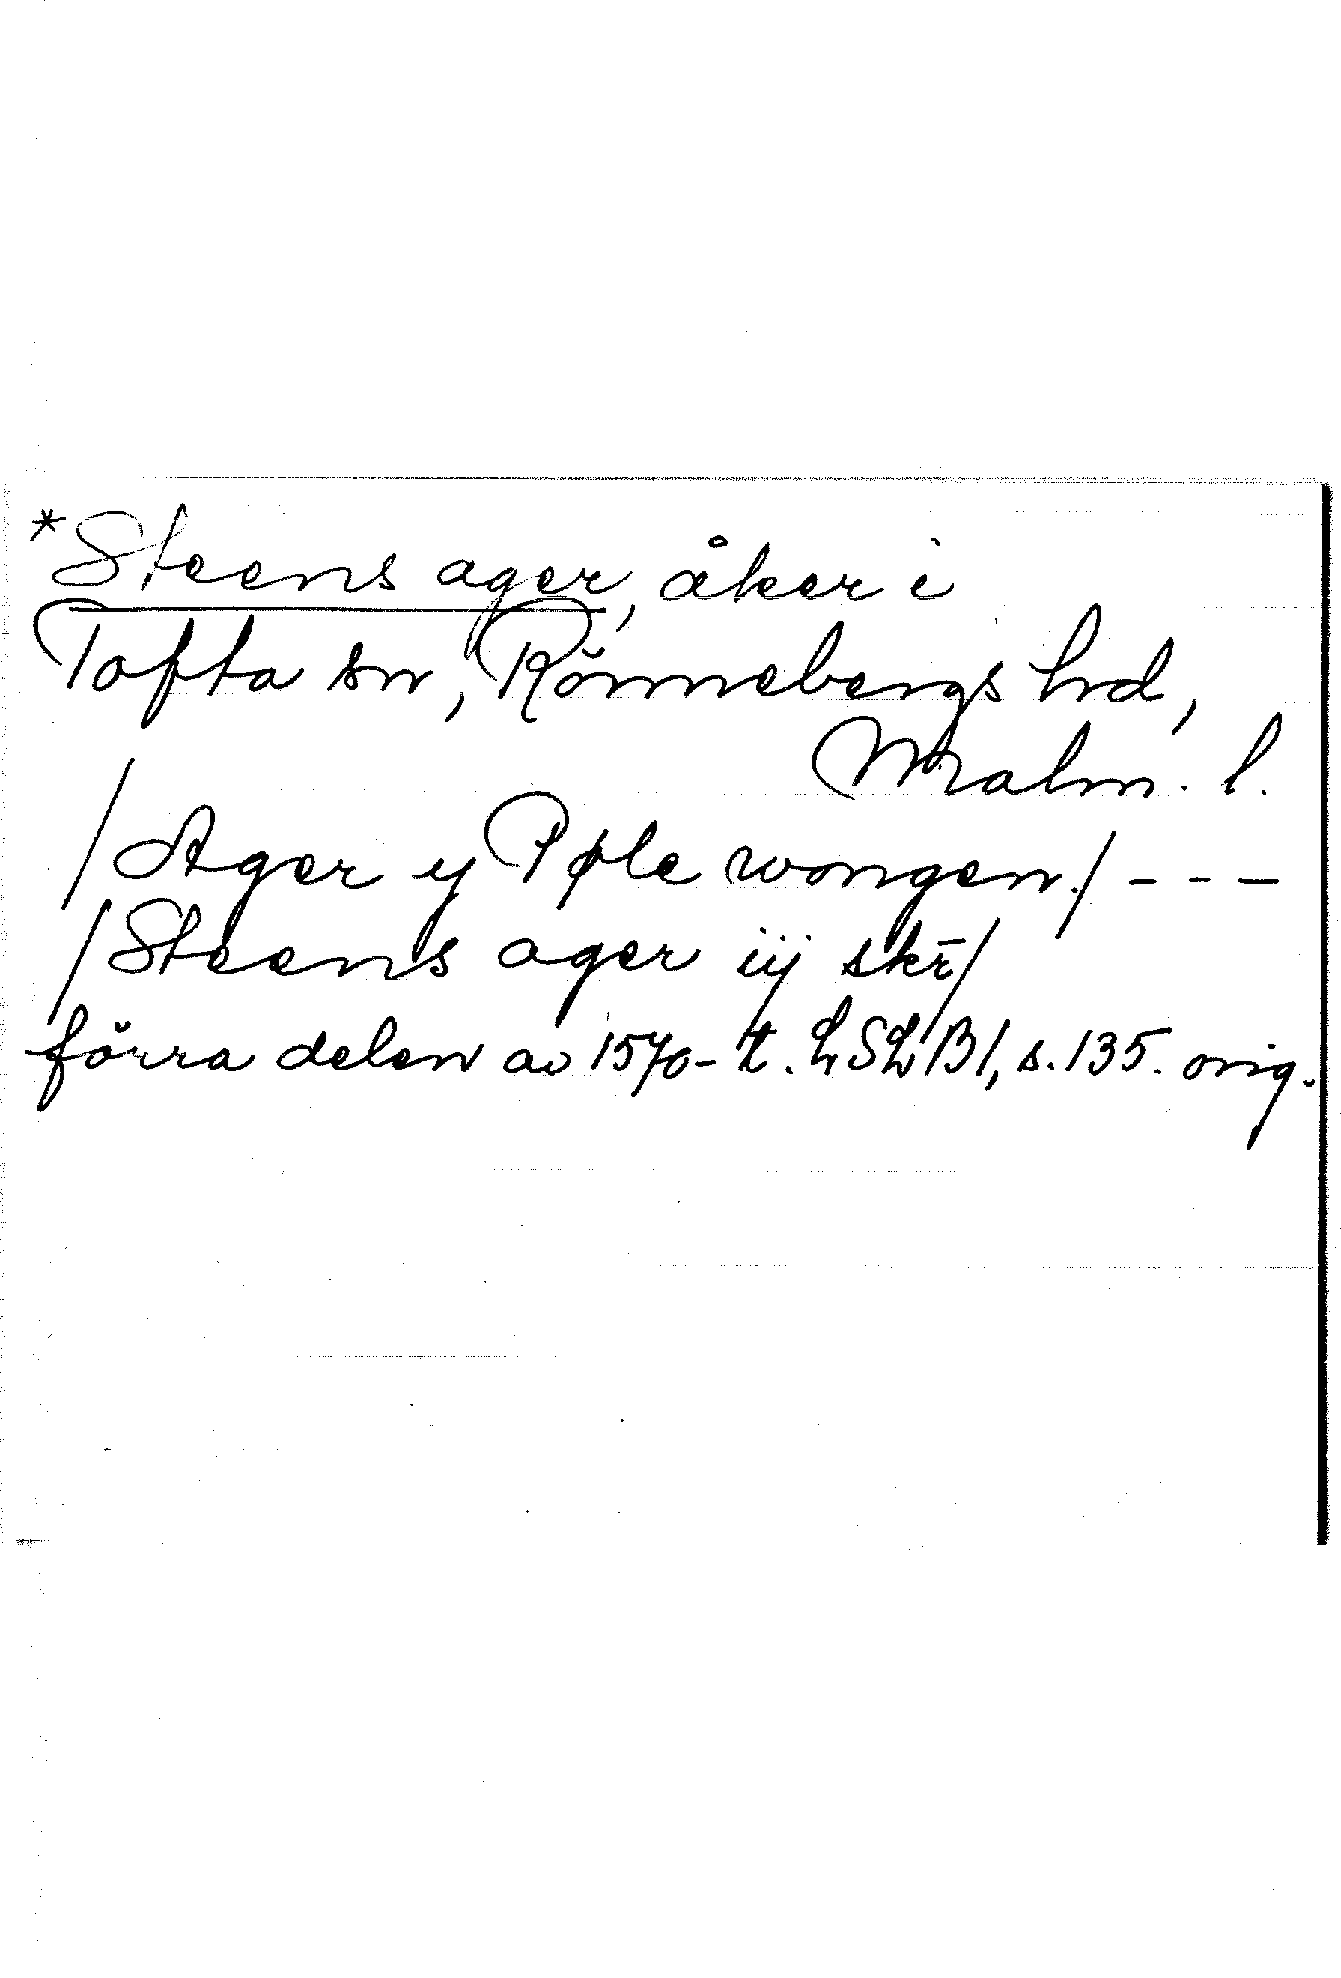 *Steens ager, åker i
Tofta sn, Rönnebergs hrd,
Malm. l.
/Ager y Pøle wongen./ - - -
/Steens ager iij skr̄/
förra delen av 1570-t. LSLB1, s. 135. orig.